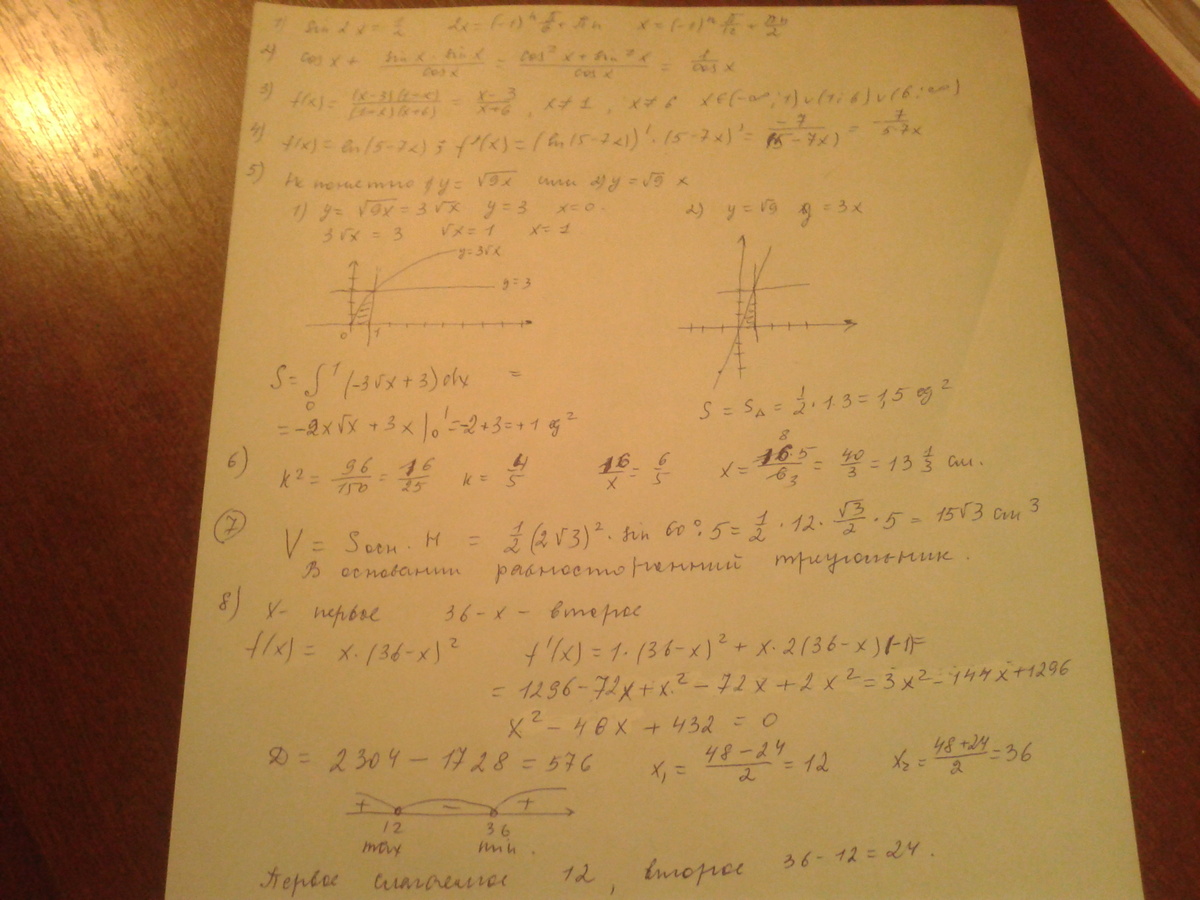 1) sin 2x = 1/2   2x = (-1)^n π/6 + πn   x = (-1)^n π/12 + πn/2
2) cos x + (sin x · sin x)/cos x = (cos² x + sin² x)/cos x = 1/cos x
3) f(x) = ((x-3)(1-x))/((1-x)(x+6)) = (x-3)/(x+6), x ≠ 1, x ≠ 6   x ∈ (-∞; 1) ∪ (1; 6) ∪ (6; ∞)
4) f(x) = ln(5-7x); f'(x) = (ln(5-7x))' · (5-7x)' = -7/(5-7x) = -7/(5-7x)
5) Не понятно 1) y = √9x или 2) y = √9 x
1) y = √9x = 3√x   y = 3   x = 0.
2) y = √9   y = 3x
3√x = 3   √x = 1   x = 1
y = 3√x
y = 3
0 1
S = ∫₀¹ (-3√x + 3) dx =
= -2x√x + 3x |₀¹ = -2+3 = +1 ед²
S = S△ = 1/2 · 1·3 = 1,5 ед²
6) k² = 96/150 = 16/25   k = 4/5   16/x = 6/5   x = 16·5/6 = 40/3 = 13 1/3 см.
8 3
7) V = Sосн. H = 1/2 (2√3)² · sin 60° · 5 = 1/2 · 12 · √3/2 · 5 = 15√3 см³
В основании равносторонний треугольник.
8) x - первое   36-x - второе
f(x) = x·(36-x)²   f'(x) = 1·(36-x)² + x·2(36-x)(-1) =
= 1296-72x+x²-72x+2x² = 3x² = 144x+1296
x² - 48x + 432 = 0
D = 2304 - 1728 = 576   x₁ = (48-24)/2 = 12   x₂ = (48+24)/2 = 36
+ - +
12 36
max min.
Первое слагаемое 12, второе 36-12 = 24.